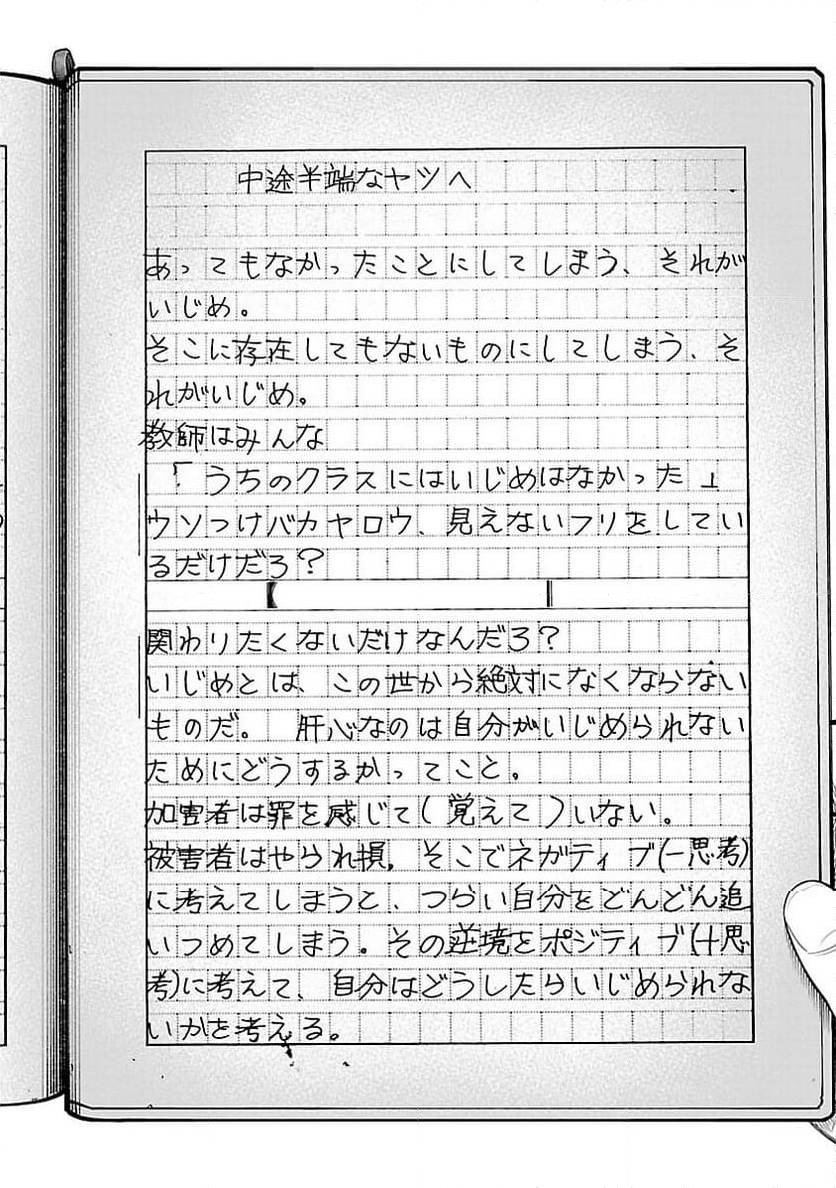 中途半端なヤツへ
あってもなかったことにしてしまう、それが
いじめ。
そこに存在してもないものにしてしまう、そ
れがいじめ。
教師はみんな
「うちのクラスにはいじめはなかった」
ウソつけバカヤロウ、見えないフリをしてい
るだけだろ？
関わりたくないだけなんだろ？
いじめとは、この世から絶対になくならない
ものだ。 肝心なのは自分がいじめられない
ためにどうするかってこと。
加害者は罪を感じて(覚えて)いない。
被害者はやられ損，そこでネガティブ(－思考)
に考えてしまうと、つらい自分をどんどん追
いつめてしまう。その逆境をポジティブ(＋思
考)に考えて、自分はどうしたらいじめられな
いかを考える。